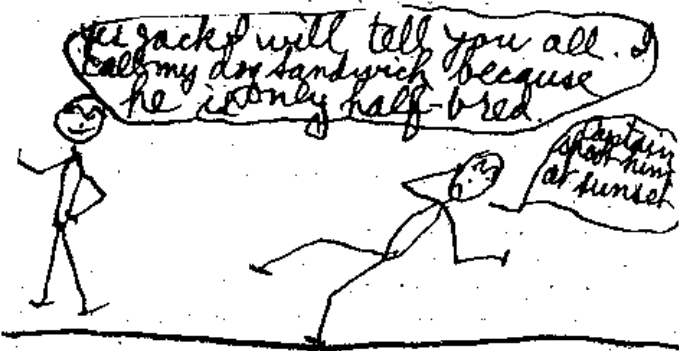 Yes Jack I will tell you all. I
call my dog sandwich because
he is only half-bred.
Captain
shoot him
at sunset